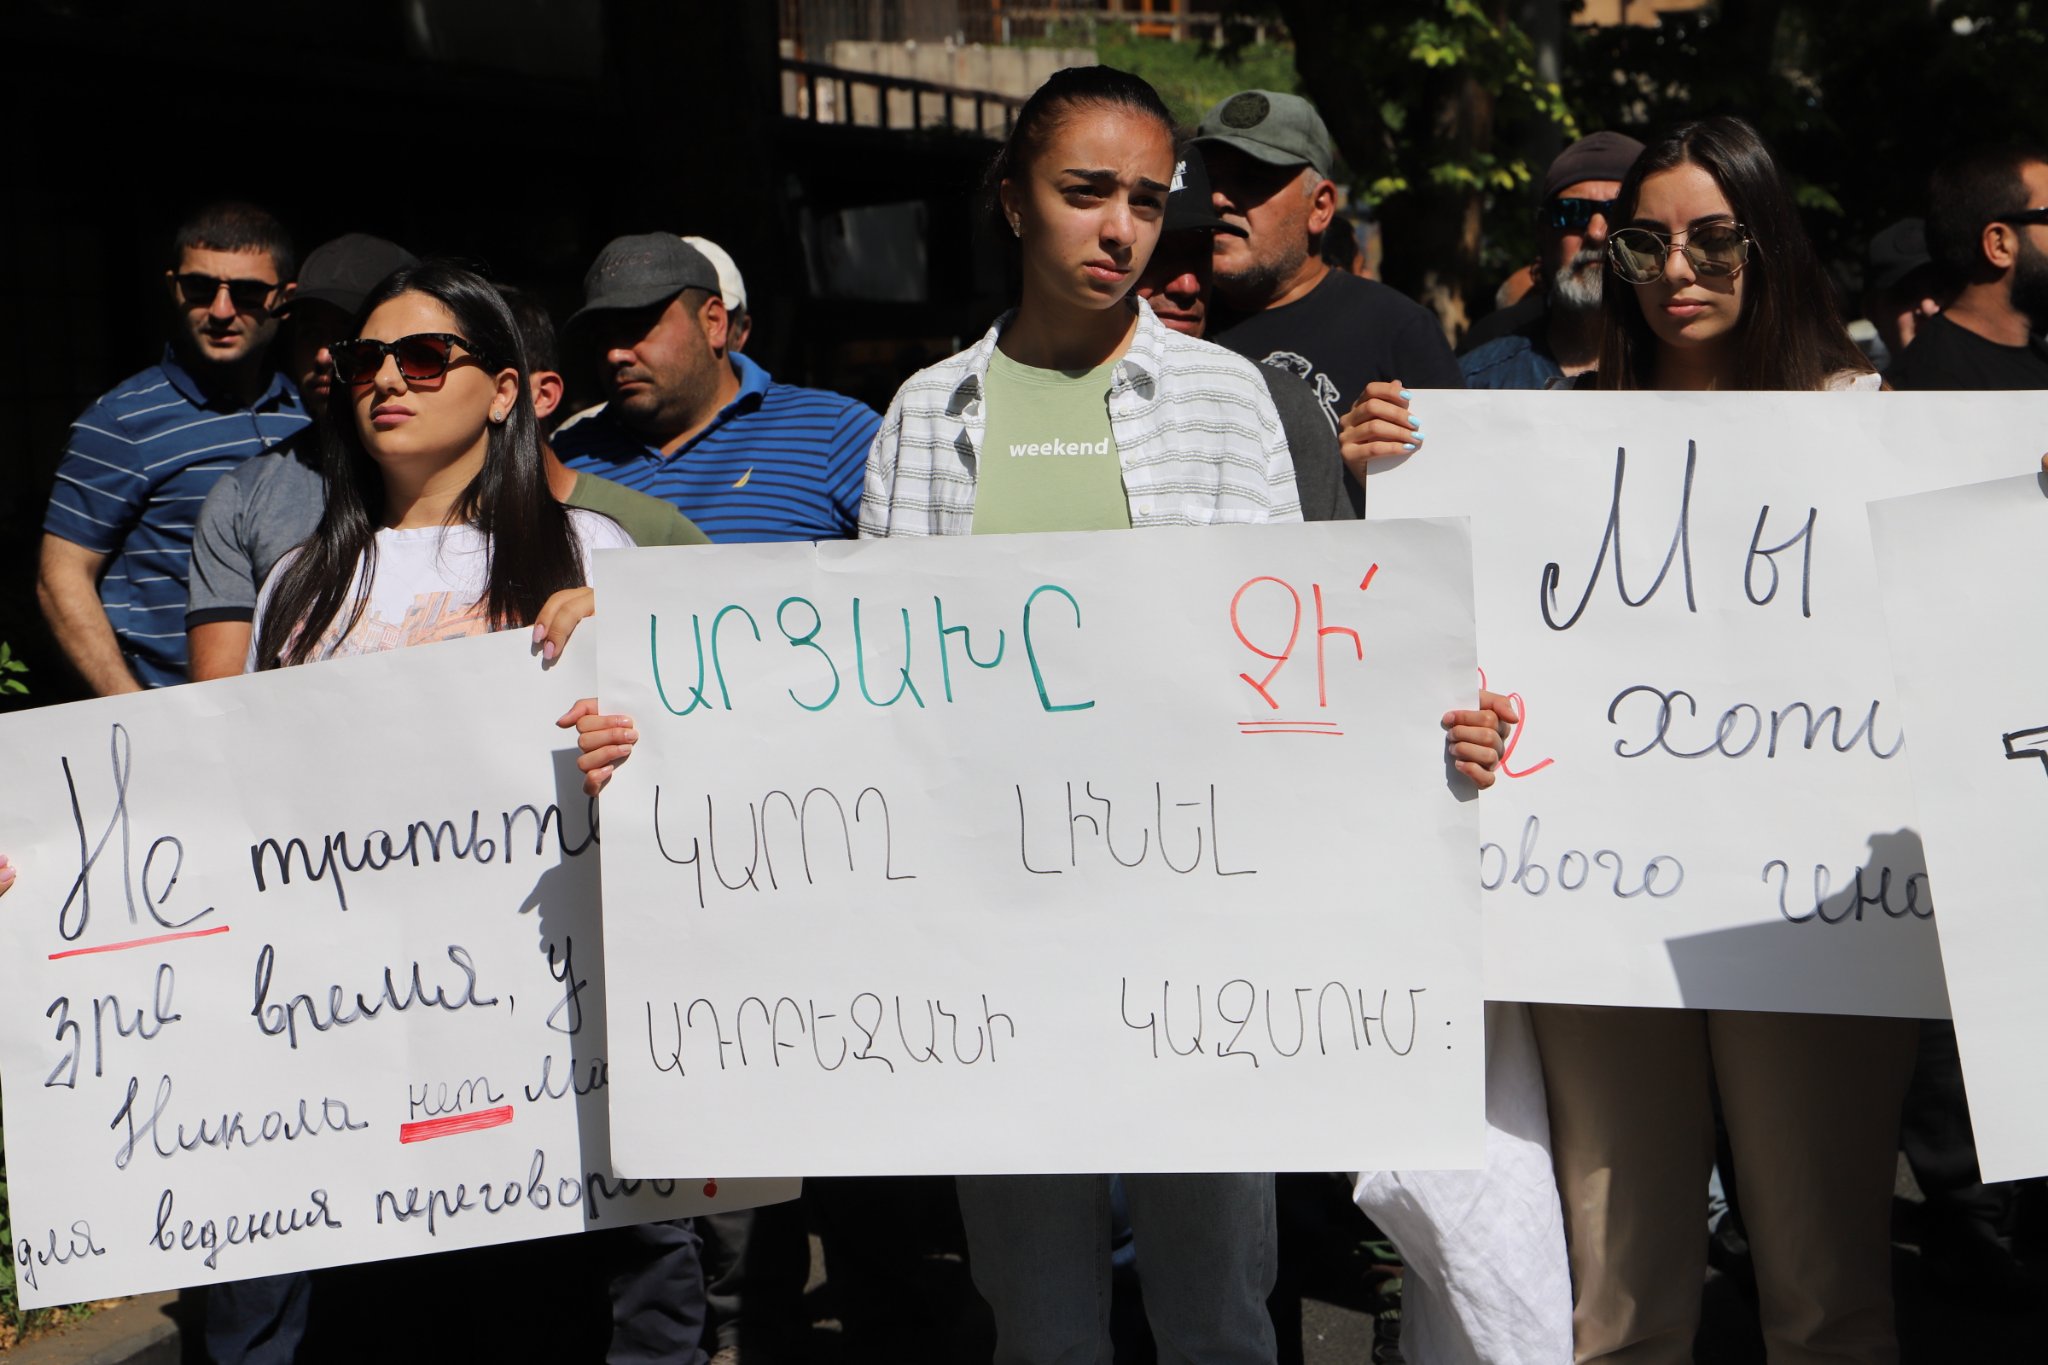 weekend
Не тратьте
зря время, у
Никола нет
для ведения переговоров!
ԱՐՑԱԽԸ ՉԻ՛
ԿԱՐՈՂ ԼԻՆԵԼ
ԱԴՐԲԵՋԱՆԻ ԿԱԶՄՈՒՄ:
Мы
хоти
ового гено